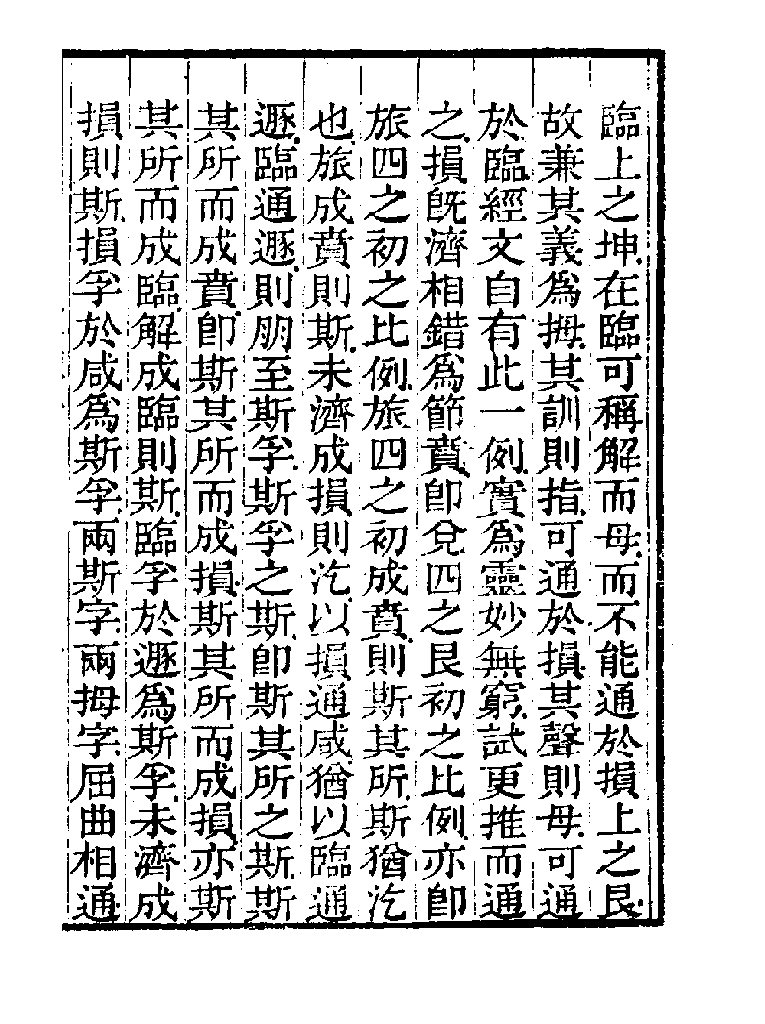 臨上之坤在臨可稱解而母而不能通於損上之艮
故兼其義為拇其訓則指可通於損其聲則母可通
於臨經文自有此一例實為靈妙無窮試更推而通
之損旣濟相錯為節賁卽兌四之艮初之比例亦卽
旅四之初之比例旅四之初成賁則斯其所斯猶汔
也旅成賁則斯未濟成損則汔以損通咸猶以臨通
遯臨通遯則朋至斯孚斯孚之斯卽斯其所之斯斯
其所而成賁卽斯其所而成損斯其所而成損亦斯
其所而成臨解成臨則斯臨孚於遯為斯孚未濟成
損則斯損孚於咸為斯孚兩斯字兩拇字屈曲相通